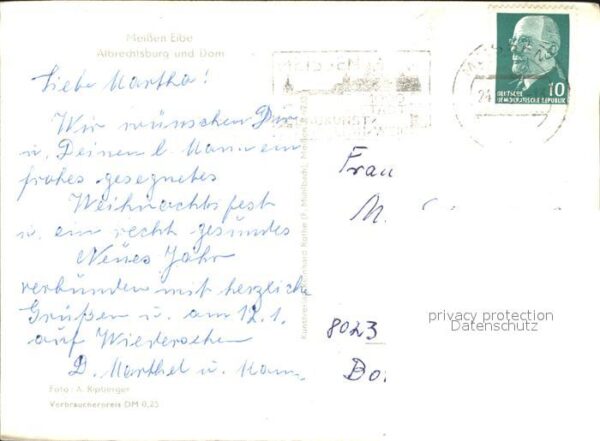 Meißen Elbe
Albrechtsburg und Dom
Liebe Martha!
Wir wünschen Dir
u. Deinen l. Mann ein
frohes gesegnetes
Weihnachtsfest
u. ein recht gesundes
Neues Jahr
verbunden mit herzliche
Grüßen u. am 12.1.
auf Wiedersehen
D. Marthel u. Mann
Foto: A. Kiplinger
Verbraucherpreis DM 0,25
10
DEUTSCHE
DEMOKRATISCHE REPUBLIK
Frau
M.
8023
privacy protection
Datenschutz